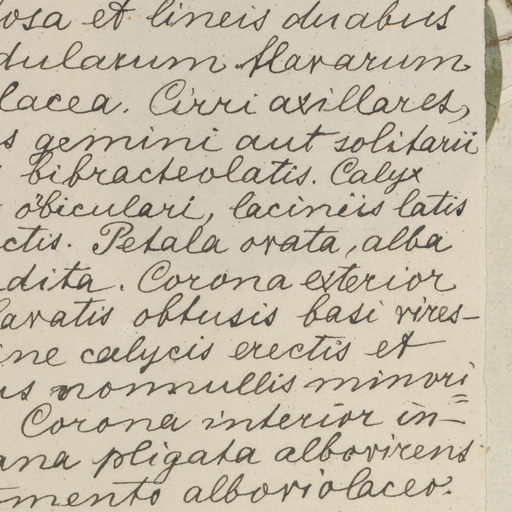 losa et lineis duabus
dularum flavarum
lacea. Cirri axillares,
s gemini aut solitarii
bibracteolatis. Calyx
o'biculari, laciniis latis
ctis. Petala ovata, alba
dita. Corona exterior
lavatis obtusis basi vires-
ine calycis erectis et
us nonnullis minori=
Corona interior in-
ana pligata albovirens
tmento alboviolaceo.